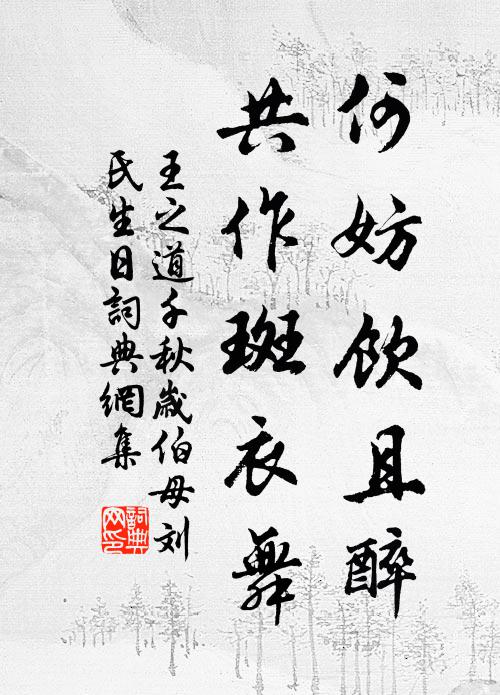 何妨飲且醉
共作斑衣舞
王之道千秋歲伯母刘
氏生日詞典網集
詞典
网印